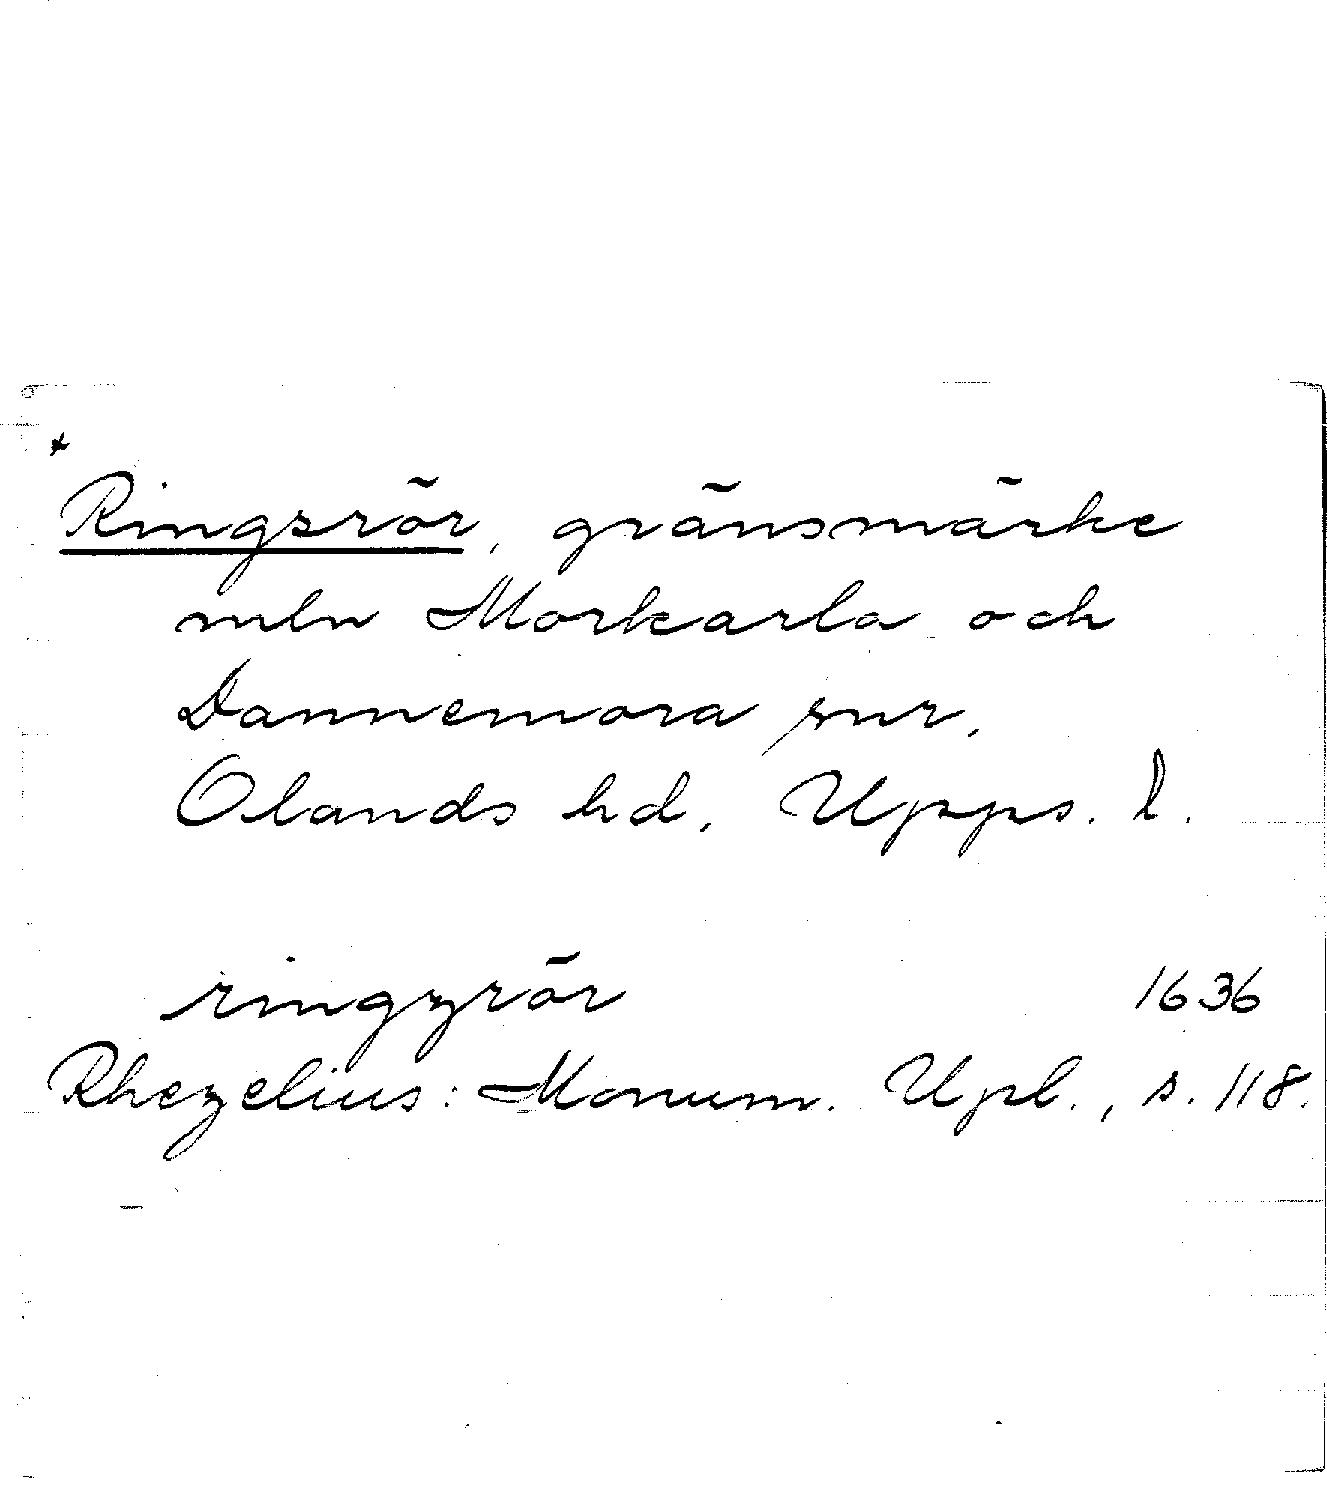 *
Ringsrör, gränsmärke
mln Morkarla och
Dannemora snr,
Olands hd, Upps. l.
ringzrör 1636
Rhezelius: Monum. Upl., s. 118.